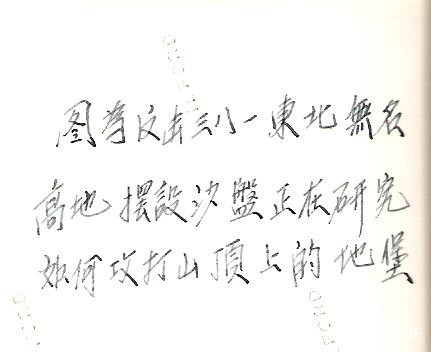 图為反击三八一東北無名
高地擺設沙盤正在研究
如何攻打山頂上的地堡